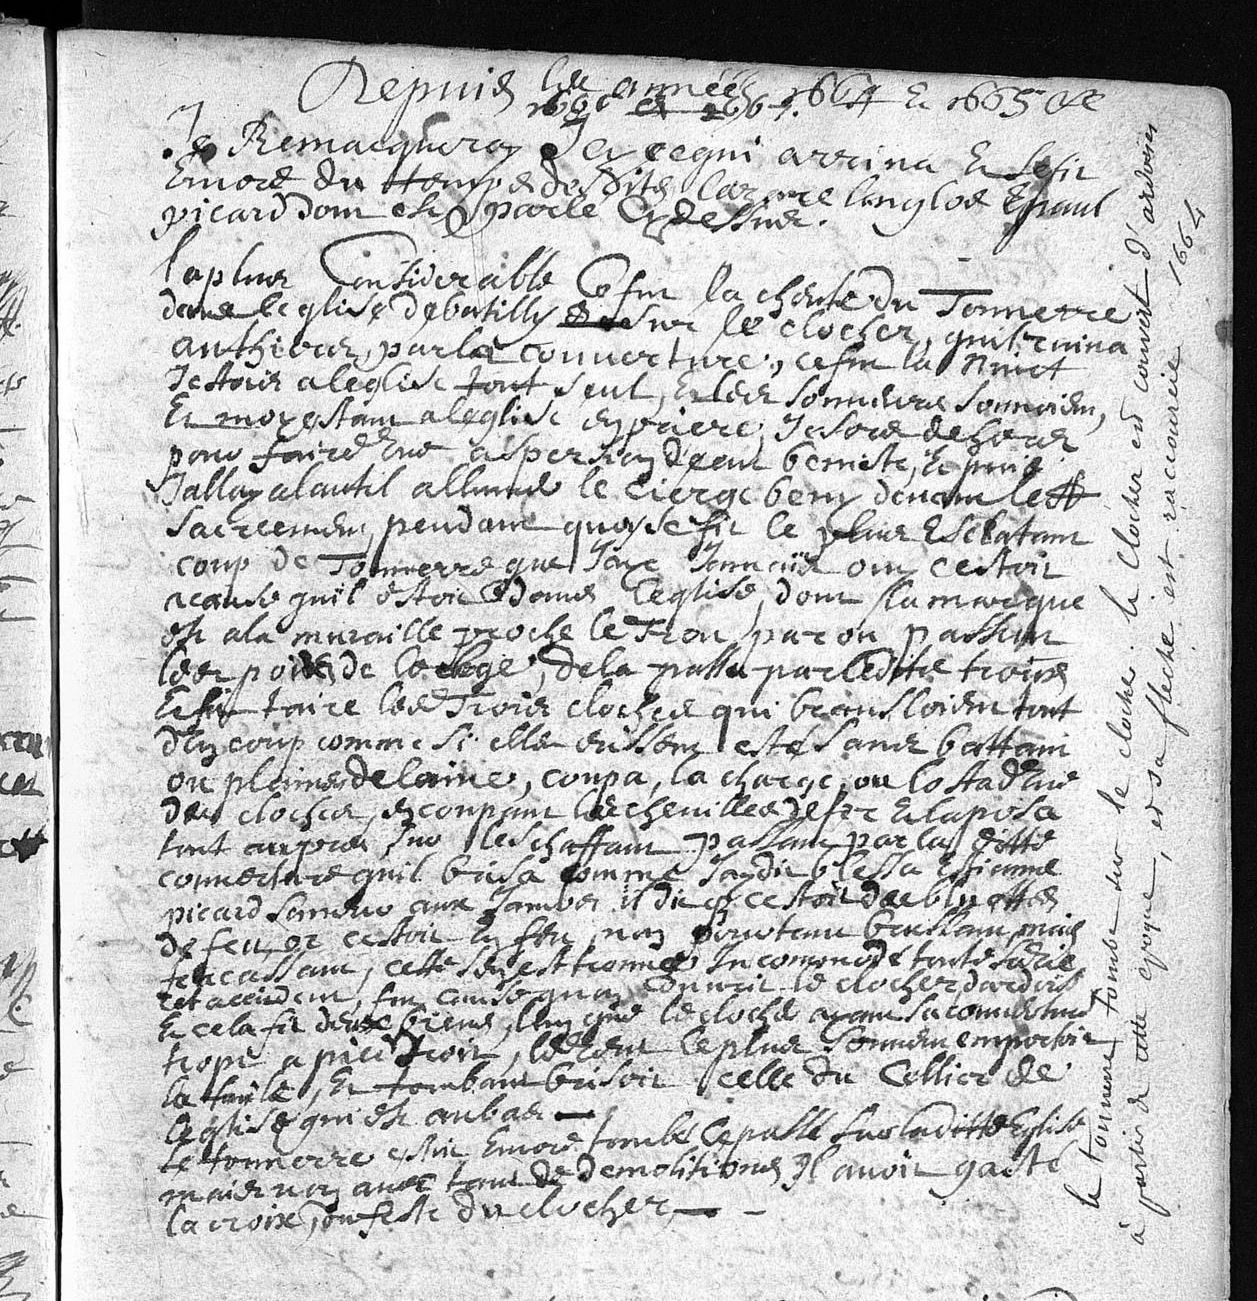 Depuis les années 1664 Et 1665 &c
1666 et 1667.
Je Remarqueray Icy cequi arriva Et se fit
Encore du temps desdites l'anglos Et paul
picard dont est parlé Cy dessus.
la plus Considerable Ce fut la cheute du Tonnerre
dans leglise debatilly sur le clocher, quil ruina
, par la couverture, ce fut la Nuict
Jestois a leglise tout seul, Et les sonneurs sonnoient,
Et moy estant a leglise en priere, Je sors dehors
pour faire Une aspersion deau beniste, Et puis
Jallay alautel allume le cierge beny devant le St
sacrement, pendant quoy se fit le plus Esclatant
coup de Tonnerre que Jaye Jamais ouy cestoit
acause quil estoit dans leglise, dont la marque
est ala muraille proche le Trou par ou passent
les poids de lorloge, dela passa par ledit trous
Et fit taire les Trois cloches qui bransloient tout
d'un coup comme si elles eussent esté sans battant
ou pleines de laine, coupa, la charge, ou
du clocher, en coupant les chevilles de fer Et la posa
tout aupres sur leschaffaut passant par la ditte
couverture quil brisa comme Jay dit blessa Estienne
picard aux Jambes il dit que cestoit des bluettes
de feu, or cestoit un feu, non pourtant bruslant, mais
fracassant, cette sen est trouvée Incommodé toute sa vie
cet accident, fut cause quon couvrit le clocher dardois
Et cela fit deux biens, lun que le clocher avant sa couverture
trope a pied droit, le vent le plus souvent emportoit
la tuile, Et tombant brisoit celle du Cellier de
leglise qui est aubas —
Le tonnerre estoit Encore tombé lepassé sur laditte Eglise
mais non avec tant de demolitions Il avoit gasté
la croix, ou feste du clocher, —
le tonnerre tombe sur le cloché. le Clocher est couvert d'ardoises
à partir de cette epoque, et sa fleche est raccourcie 1664